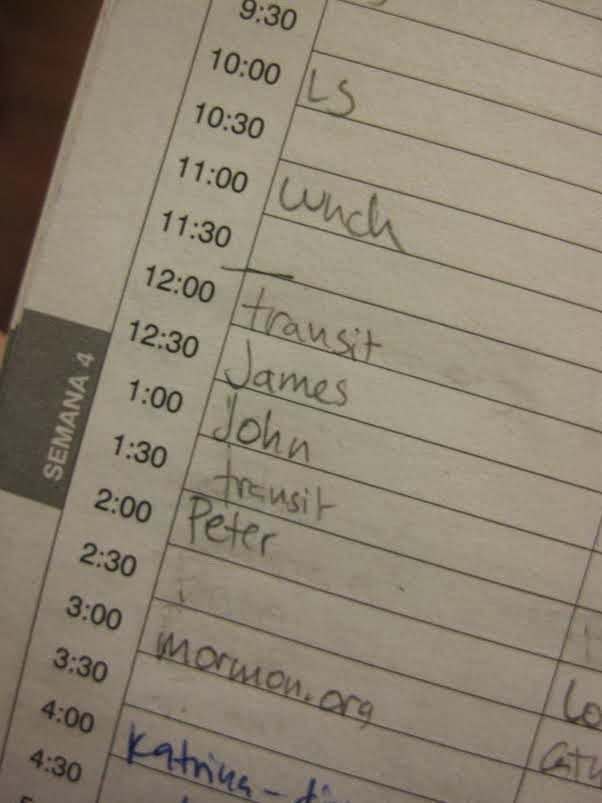 9:30
10:00 LS
10:30
11:00 Lunch
11:30
12:00 transit
12:30 James
1:00 John
1:30 transit
2:00 Peter
2:30
3:00 mormon.org
3:30
4:00 Katrina -
4:30
SEMANA 4